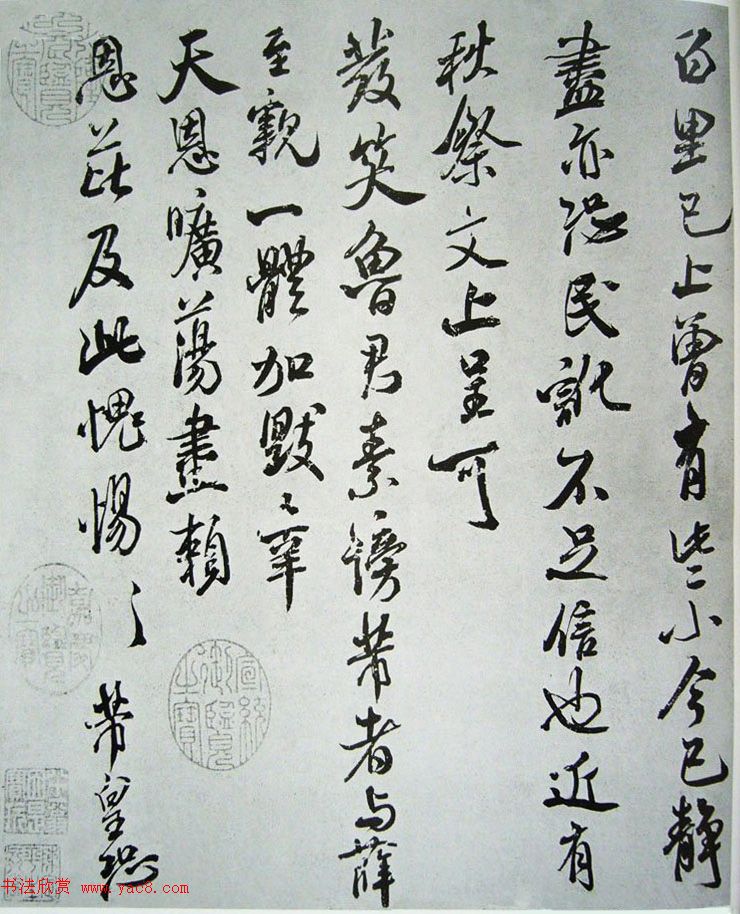 百里已上曾有些小今已静
盡亦恐民訛不足信也近有
秋祭文上呈可
發笑魯君素謗芾者与薛
至親一體加毀
天恩曠蕩盡賴
恩芘及此愧惕〻
芾皇恐
宣統御覽之寶
书法欣赏 www.yac8.com